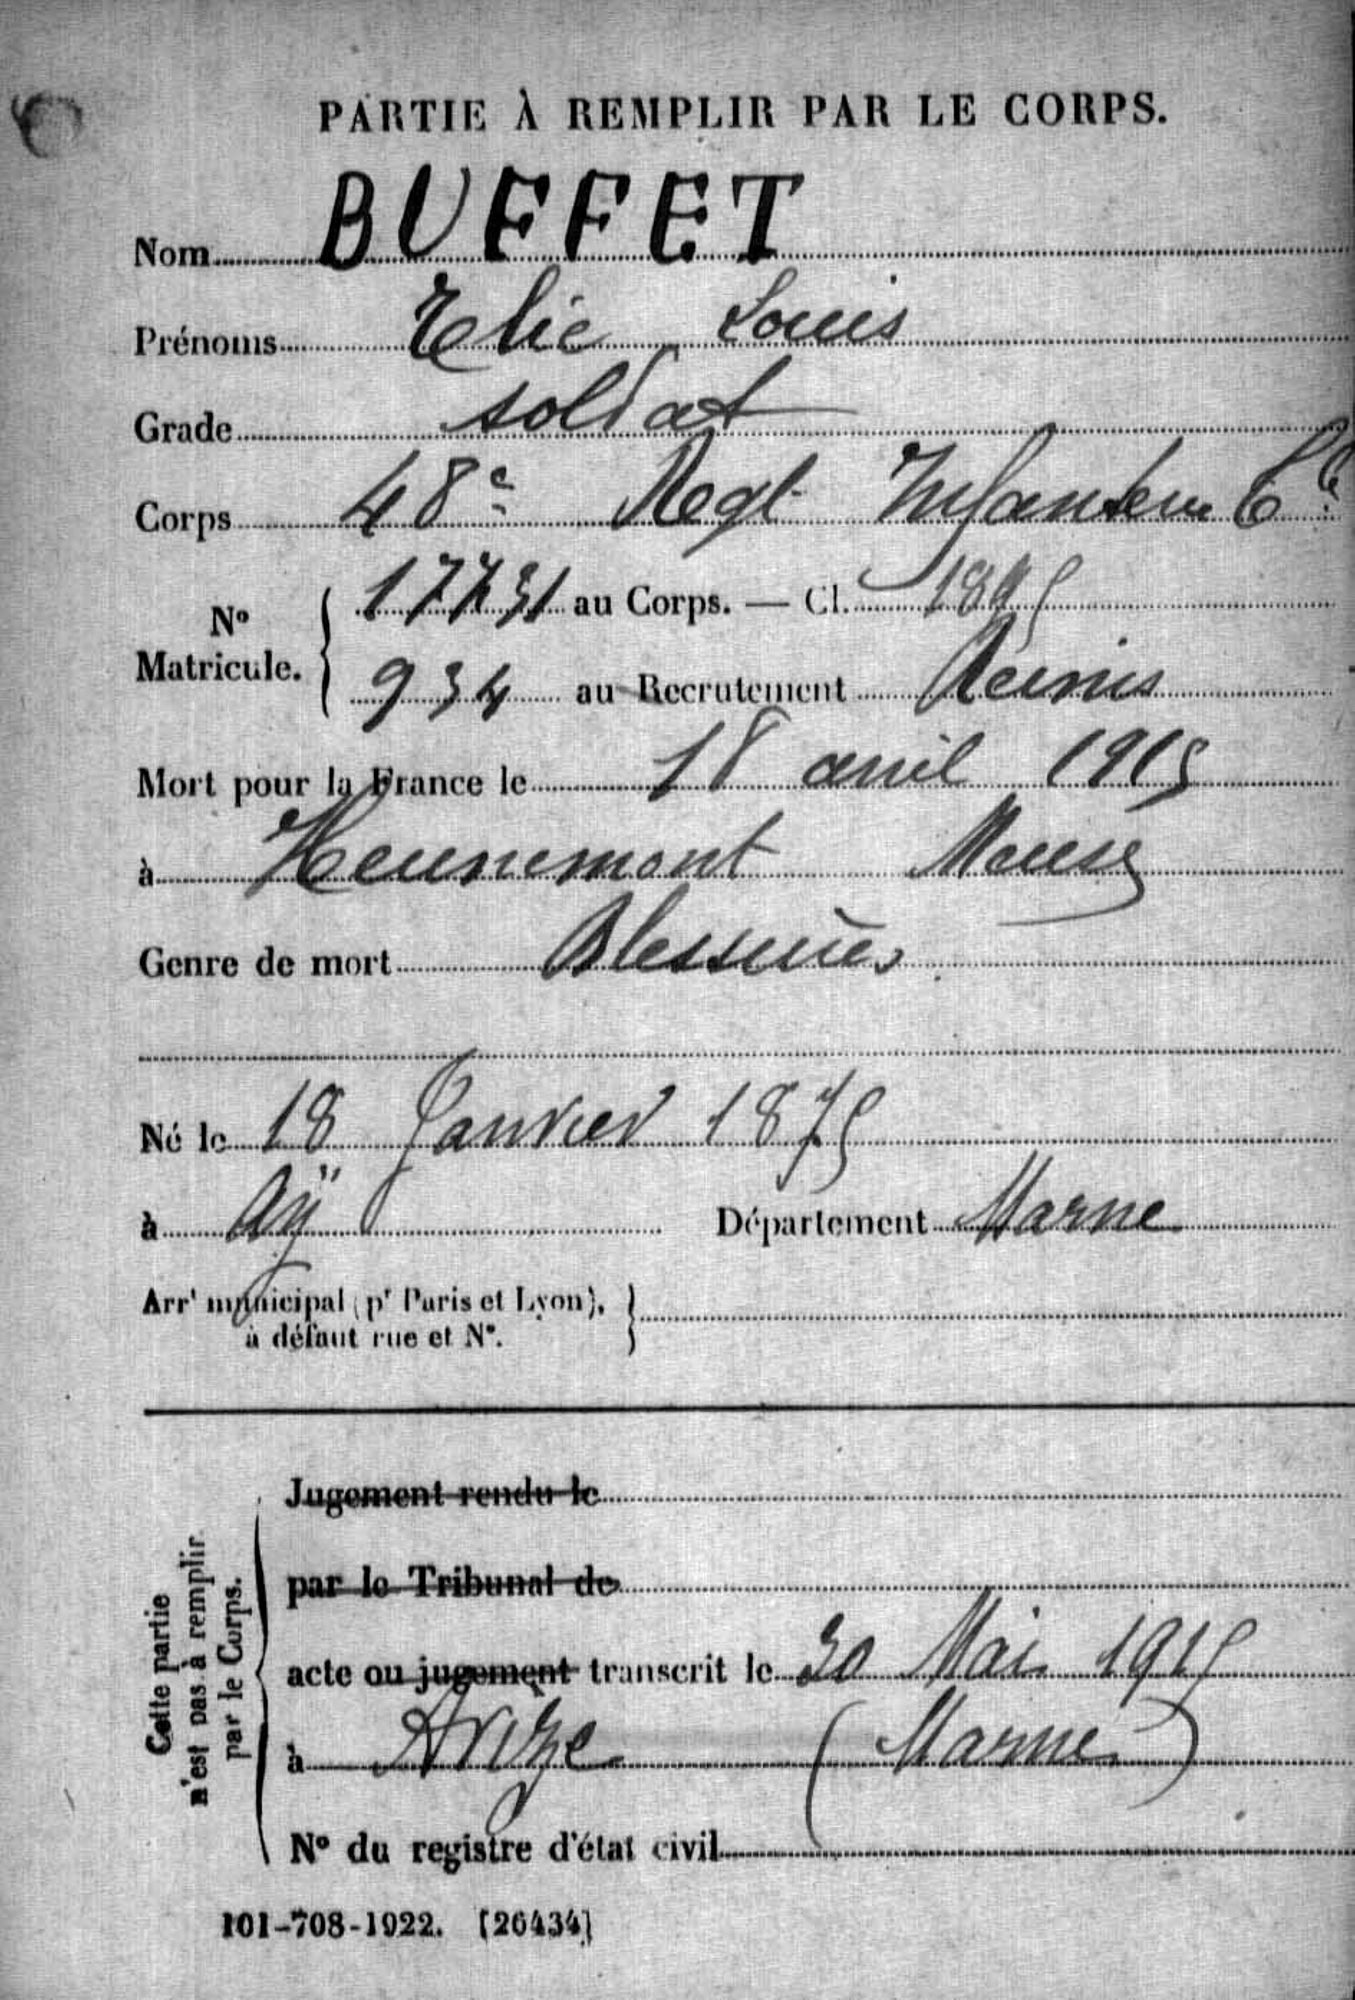 PARTIE À REMPLIR PAR LE CORPS.
Nom BUFFET
Prénoms Elie Louis
Grade soldat
Corps 48e Regt Infanterie Cle
No Matricule. 17731 au Corps. — Cl. 1895
934 au Recrutement Reims
Mort pour la France le 18 avril 1915
à Hennemont Meuse
Genre de mort Blessures
Né le 18 Janvier 1875
à Aÿ Département Marne
Arrt municipal (pr Paris et Lyon),
à défaut rue et No.
Cette partie
n'est pas à remplir
par le Corps.
Jugement rendu le
par le Tribunal de
acte ou jugement transcrit le 30 Mai 1915
à Avize (Marne)
No du registre d'état civil
101-708-1922. [26434]